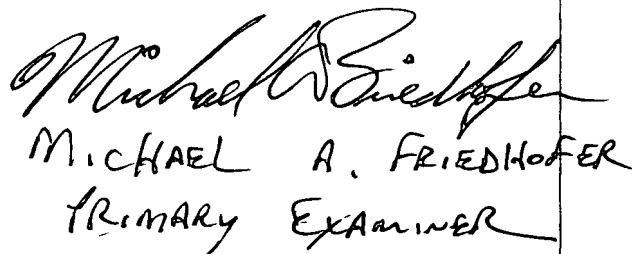 Michael A Friedhofer
MICHAEL A. FRIEDHOFER
PRIMARY EXAMINER